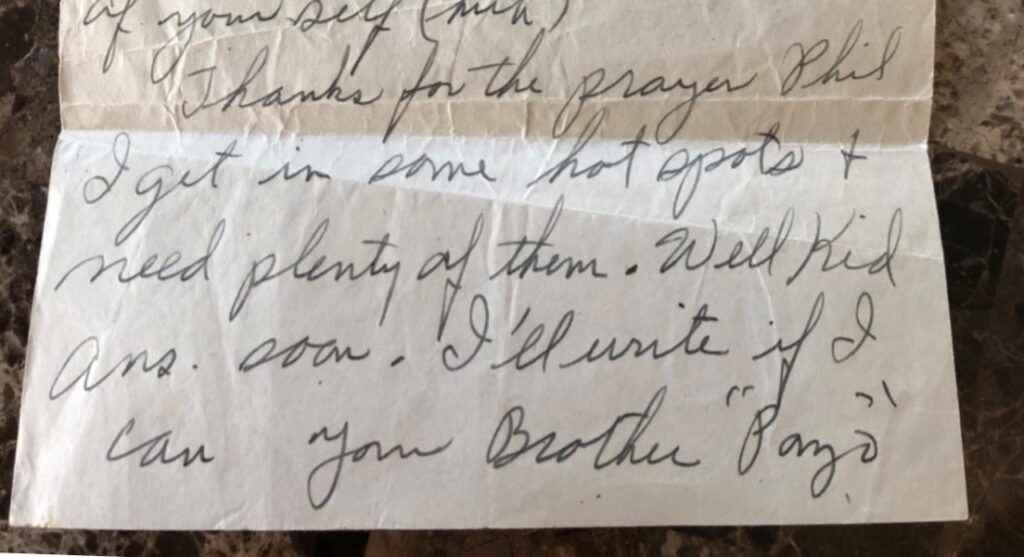 of your self (huh)
Thanks for the prayer Phil
I get in some hot spots +
need plenty of them. Well Kid
Ans. soon. I'll write if I
can your Brother